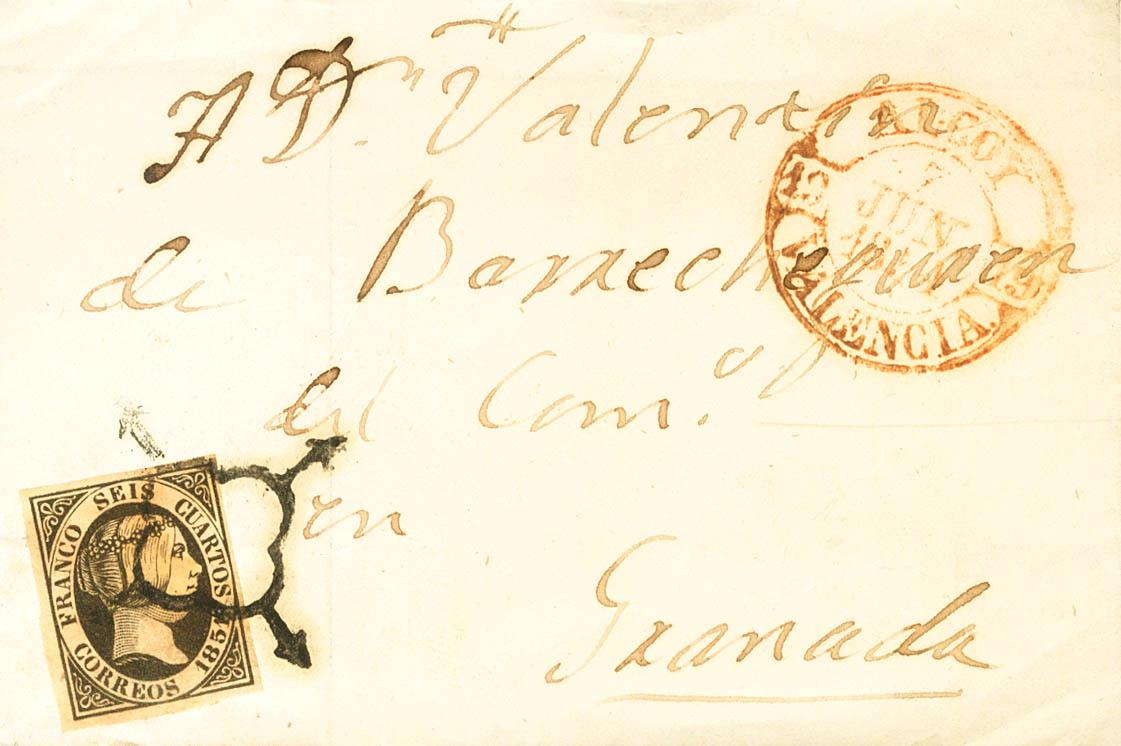 A Dn. Vn Valentin
de Barrecheguren
del Com.o
en
Granada
ALCOY
7
JUN
VALENCIA.
13
FRANCO SEIS CUARTOS
CORREOS 1851